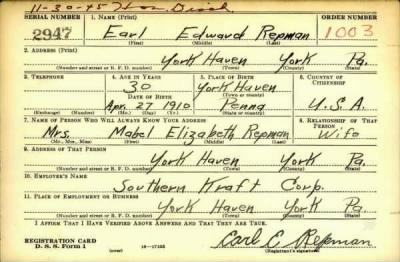 11-30-45 Hon. Disch.
SERIAL NUMBER 1. NAME (Print) ORDER NUMBER
2947 Earl Edward Repman 1003
(First) (Middle) (Last)
2. ADDRESS (Print)
York Haven York Pa.
(Number and street or R. F. D. number) (Town) (County) (State)
3. TELEPHONE 4. AGE IN YEARS 5. PLACE OF BIRTH 6. COUNTRY OF CITIZENSHIP
30 York Haven
DATE OF BIRTH (Town or county)
Apr. 27 1910 Penna U.S.A.
(Exchange) (Number) (Mo.) (Day) (Yr.) (State or country)
7. NAME OF PERSON WHO WILL ALWAYS KNOW YOUR ADDRESS 8. RELATIONSHIP OF THAT PERSON
Mrs. Mabel Elizabeth Repman Wife
(Mr., Mrs., Miss) (First) (Middle) (Last)
9. ADDRESS OF THAT PERSON
York Haven York Pa.
(Number and street or R. F. D. number) (Town) (County) (State)
10. EMPLOYER'S NAME
Southern Kraft Corp.
11. PLACE OF EMPLOYMENT OR BUSINESS
York Haven York Pa.
(Number and street or R. F. D. number) (Town) (County) (State)
I AFFIRM THAT I HAVE VERIFIED ABOVE ANSWERS AND THAT THEY ARE TRUE.
REGISTRATION CARD
D. S. S. Form 1 (over) 16-17105 Earl E. Repman
(Registrant's signature)